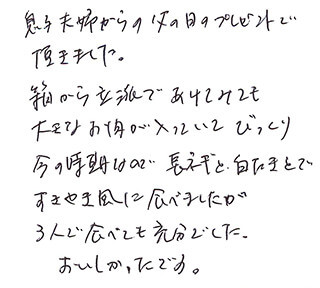 息子夫婦からの父の日のプレゼントで
頂きました。
箱から立派であけてみても
大きなお肉が入っていてびっくり
今の時期なので長ネギと白たきとで
すきやき風に食べましたが
3人で食べても充分でした。
おいしかったです。